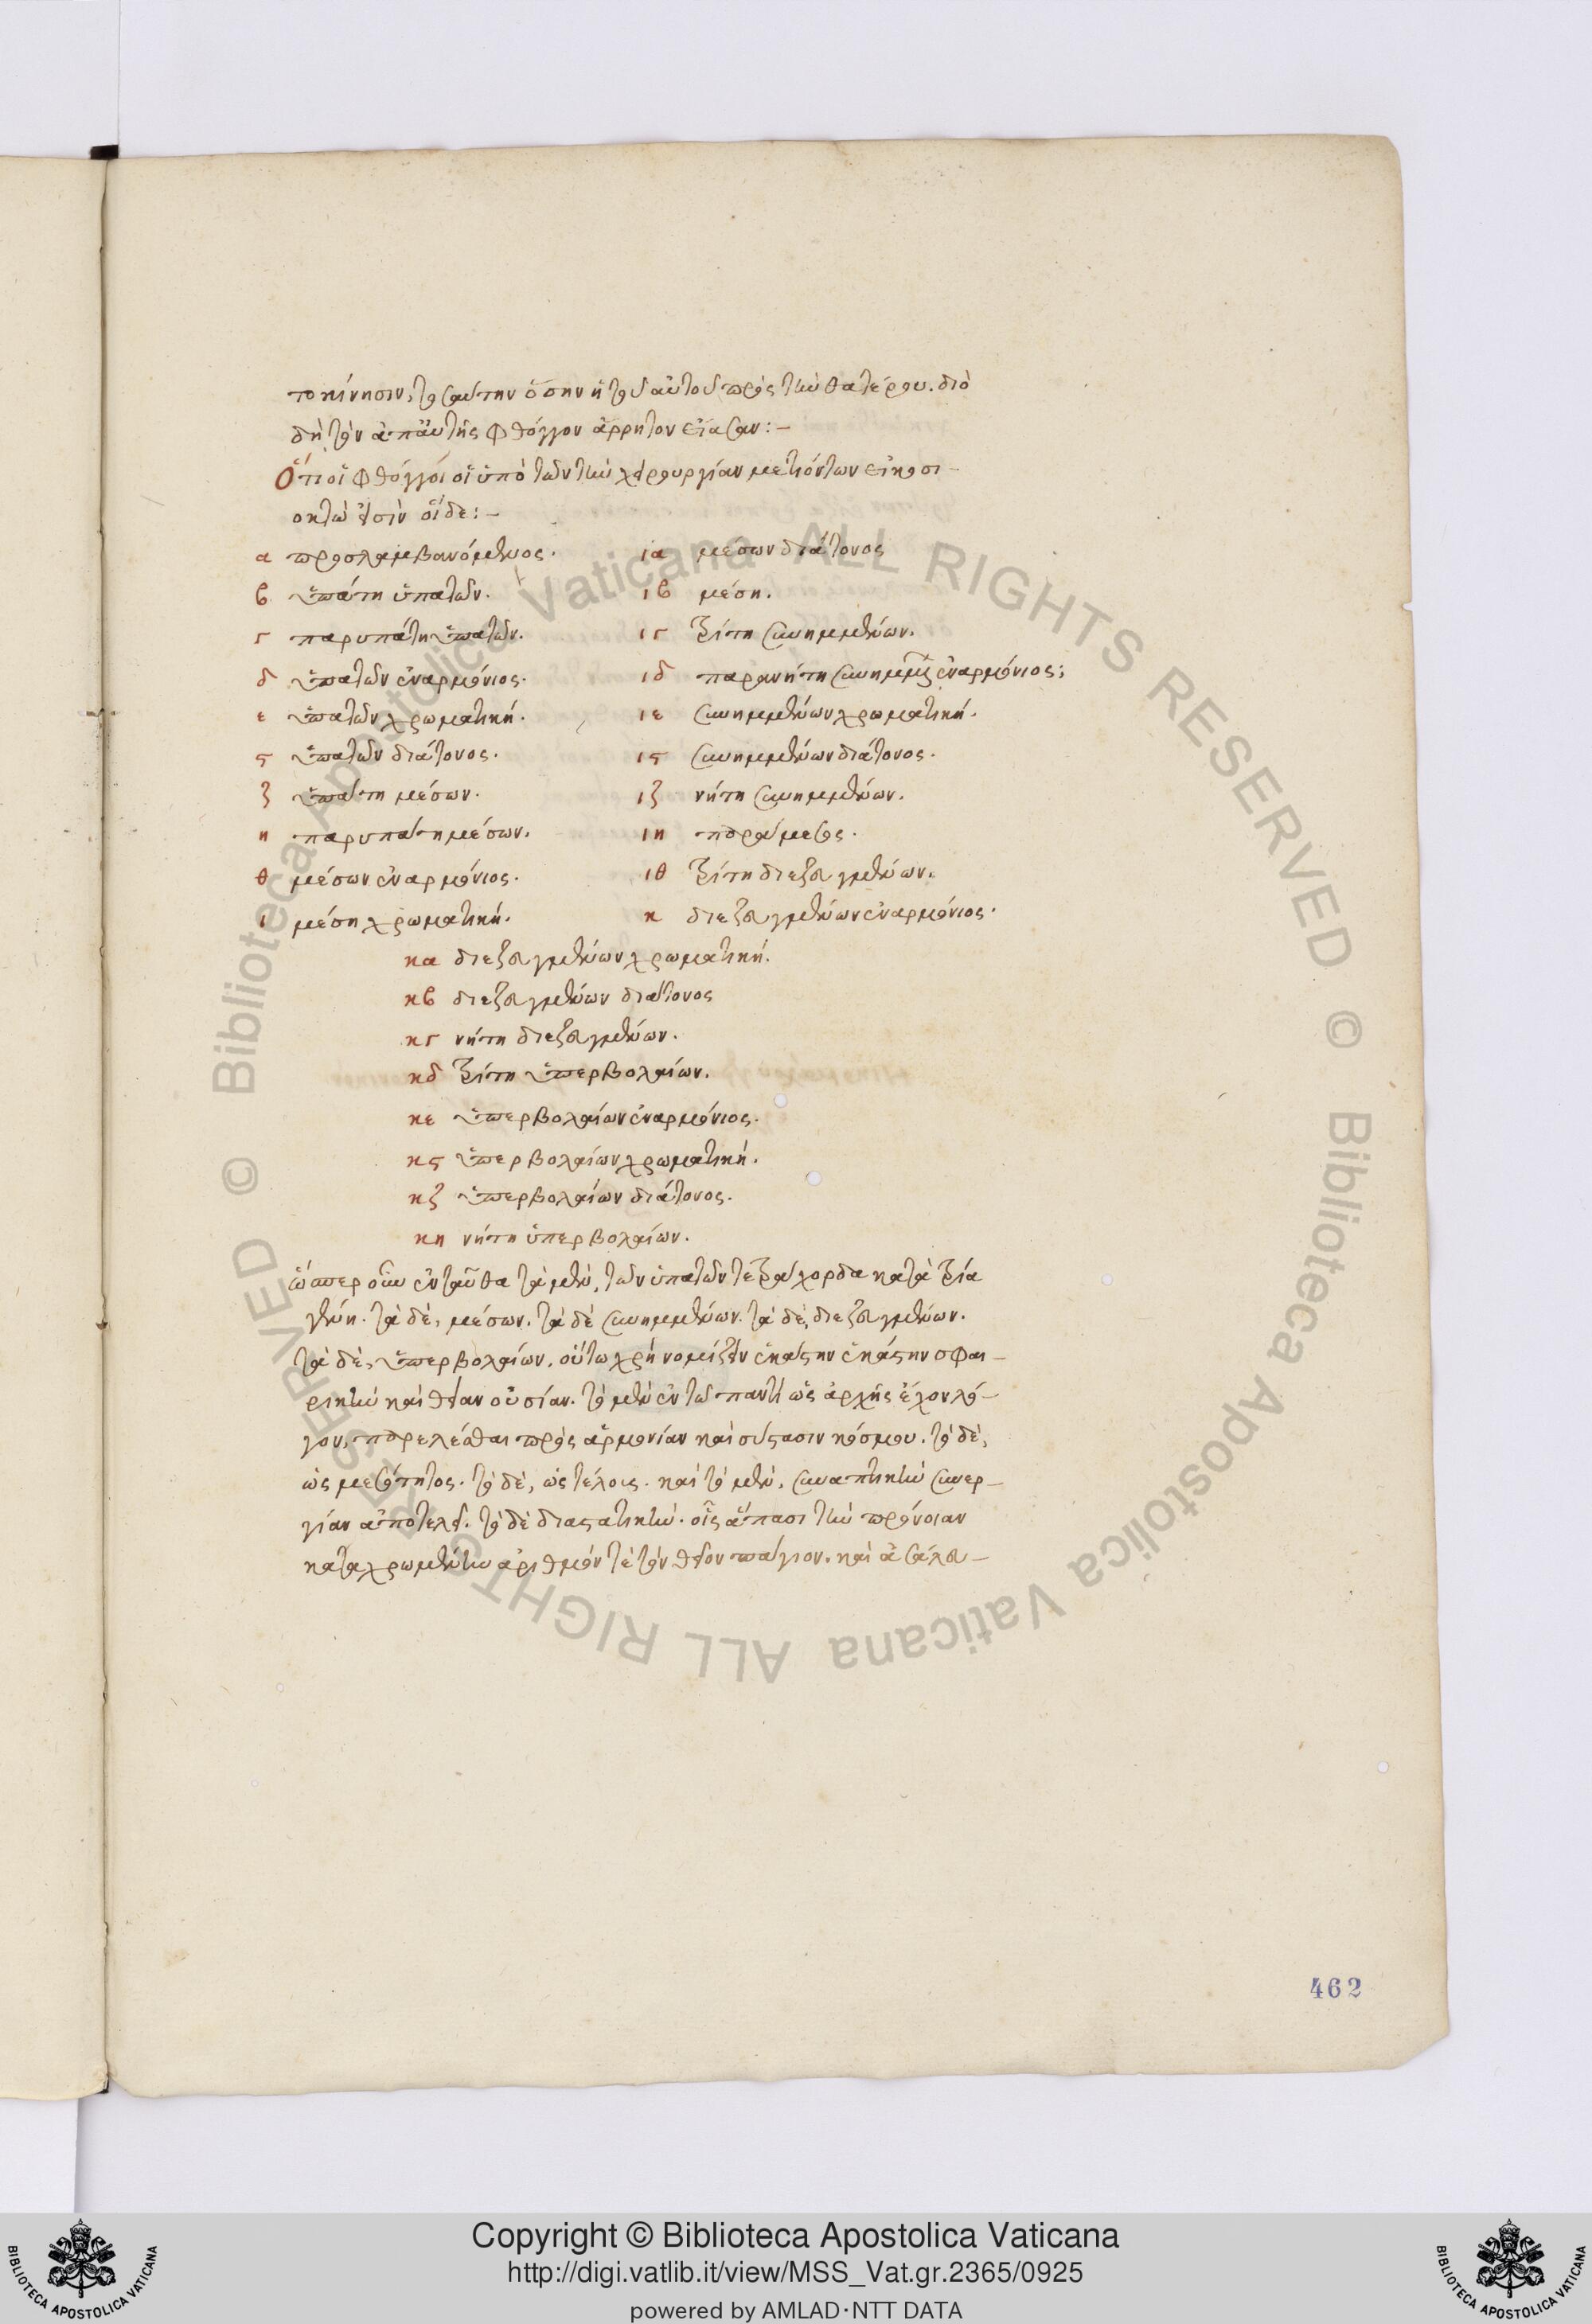 το κίνησιν, τοσαύτην ὅσην ἡ τοῦ αὐτοῦ πρὸς τὴν θατέρου. διὸ
δὴ τὸν ἀπ' αὐτῆς φθόγγον ἄρρητον εἴασαν:-
Ὅτι οἱ φθόγγοι οἱ ὑπὸ τῶν τὴν χειρουργίαν μετιόντων εἰκοσι-
οκτὼ εἰσὶν οἵδε:-
α προσλαμβανόμενος.
β ὑπάτη ὑπατῶν.
γ παρυπάτη ὑπατῶν.
δ ὑπατῶν ἐναρμόνιος.
ε ὑπατῶν χρωματική.
ς ὑπατῶν διάτονος.
ζ ὑπάτη μέσων.
η παρυπάτη μέσων.
θ μέσων ἐναρμόνιος.
ι μέση χρωματική.
ια μέσων διάτονος
ιβ μέση.
ιγ τρίτη συνημμένων.
ιδ παρανήτη συνημμένων ἐναρμόνιος;
ιε συνημμένων χρωματική.
ις συνημμένων διάτονος.
ιζ νήτη συνημμένων.
ιη παράμεσος.
ιθ τρίτη διεζευγμένων.
κ διεζευγμένων ἐναρμόνιος.
κα διεζευγμένων χρωματική.
κβ διεζευγμένων διάτονος
κγ νήτη διεζευγμένων.
κδ τρίτη ὑπερβολαίων.
κε ὑπερβολαίων ἐναρμόνιος.
κς ὑπερβολαίων χρωματική.
κζ ὑπερβολαίων διάτονος.
κη νήτη ὑπερβολαίων.
ὥσπερ οὖν ἐνταῦθα τὰ μὲν, τῶν ὑπατῶν τετράχορδα κατὰ τρία
γένη. τὰ δὲ, μέσων. τὰ δὲ συνημμένων. τὰ δὲ, διεζευγμένων.
τὰ δὲ, ὑπερβολαίων, οὕτω χρὴ νομίζειν ἑκάστην ἑκάστην σφαι-
ρικὴν καὶ θείαν οὐσίαν. τὸ μὲν ἐν τῷ παντὶ ὡς ἀρχῆς ἔχον λό-
γον, παρελέσθαι πρὸς ἁρμονίαν καὶ σύστασιν κόσμου. τὸ δὲ,
ὡς μεσότητος. τὸ δὲ, ὡς τέλους. καὶ τὸ μὲν, συναπτικὴν συνερ-
γίαν ἀποτελεῖ. τὸ δὲ διαστατικὴν. οἷς ἅπασι τὴν πρόνοιαν
καταχρωμένην ἀριθμόν τε τὸν θεῖον πάγιον. καὶ ἀσάλευ-
462
Copyright © Biblioteca Apostolica Vaticana
http://digi.vatlib.it/view/MSS_Vat.gr.2365/0925
powered by AMLAD·NTT DATA
© Biblioteca Apostolica Vaticana ALL RIGHTS RESERVED © Biblioteca Apostolica Vaticana ALL RIGHTS RESERVED
BIBLIOTECA APOSTOLICA VATICANA
BIBLIOTECA APOSTOLICA VATICANA